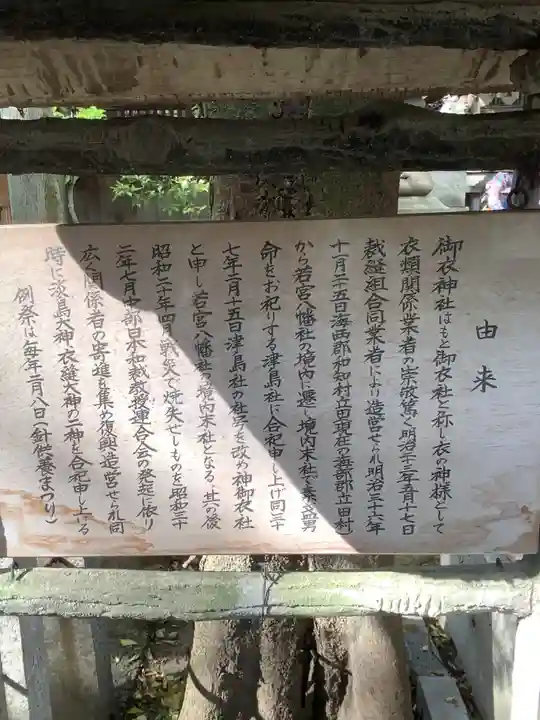 由来
御衣神社はもと御衣社と称し衣の神様として
衣類関係業者の崇敬篤く明治二十三年五月十七日
裁縫組合同業者により造営せられ明治三十六年
十一月二十五日海西郡和知村立田現在の海部郡立田村
から若宮八幡社の境内に遷し境内末社で素盞男
命をお祀りする津島社に合祀申し上げ同三十
七年二月十五日津島社の社号を改め神御衣社
と申し若宮八幡社の境内末社となる、其の後
昭和二十年四月戦災で焼失せしものを昭和三十
二年七月中部日本和裁教授連合会の発起に依り
広く関係者の寄進を集め復興造営せられ同
時に淡島大神、衣縫大神の二神を合祀申し上げる
例祭は毎年二月八日(針供養まつり)